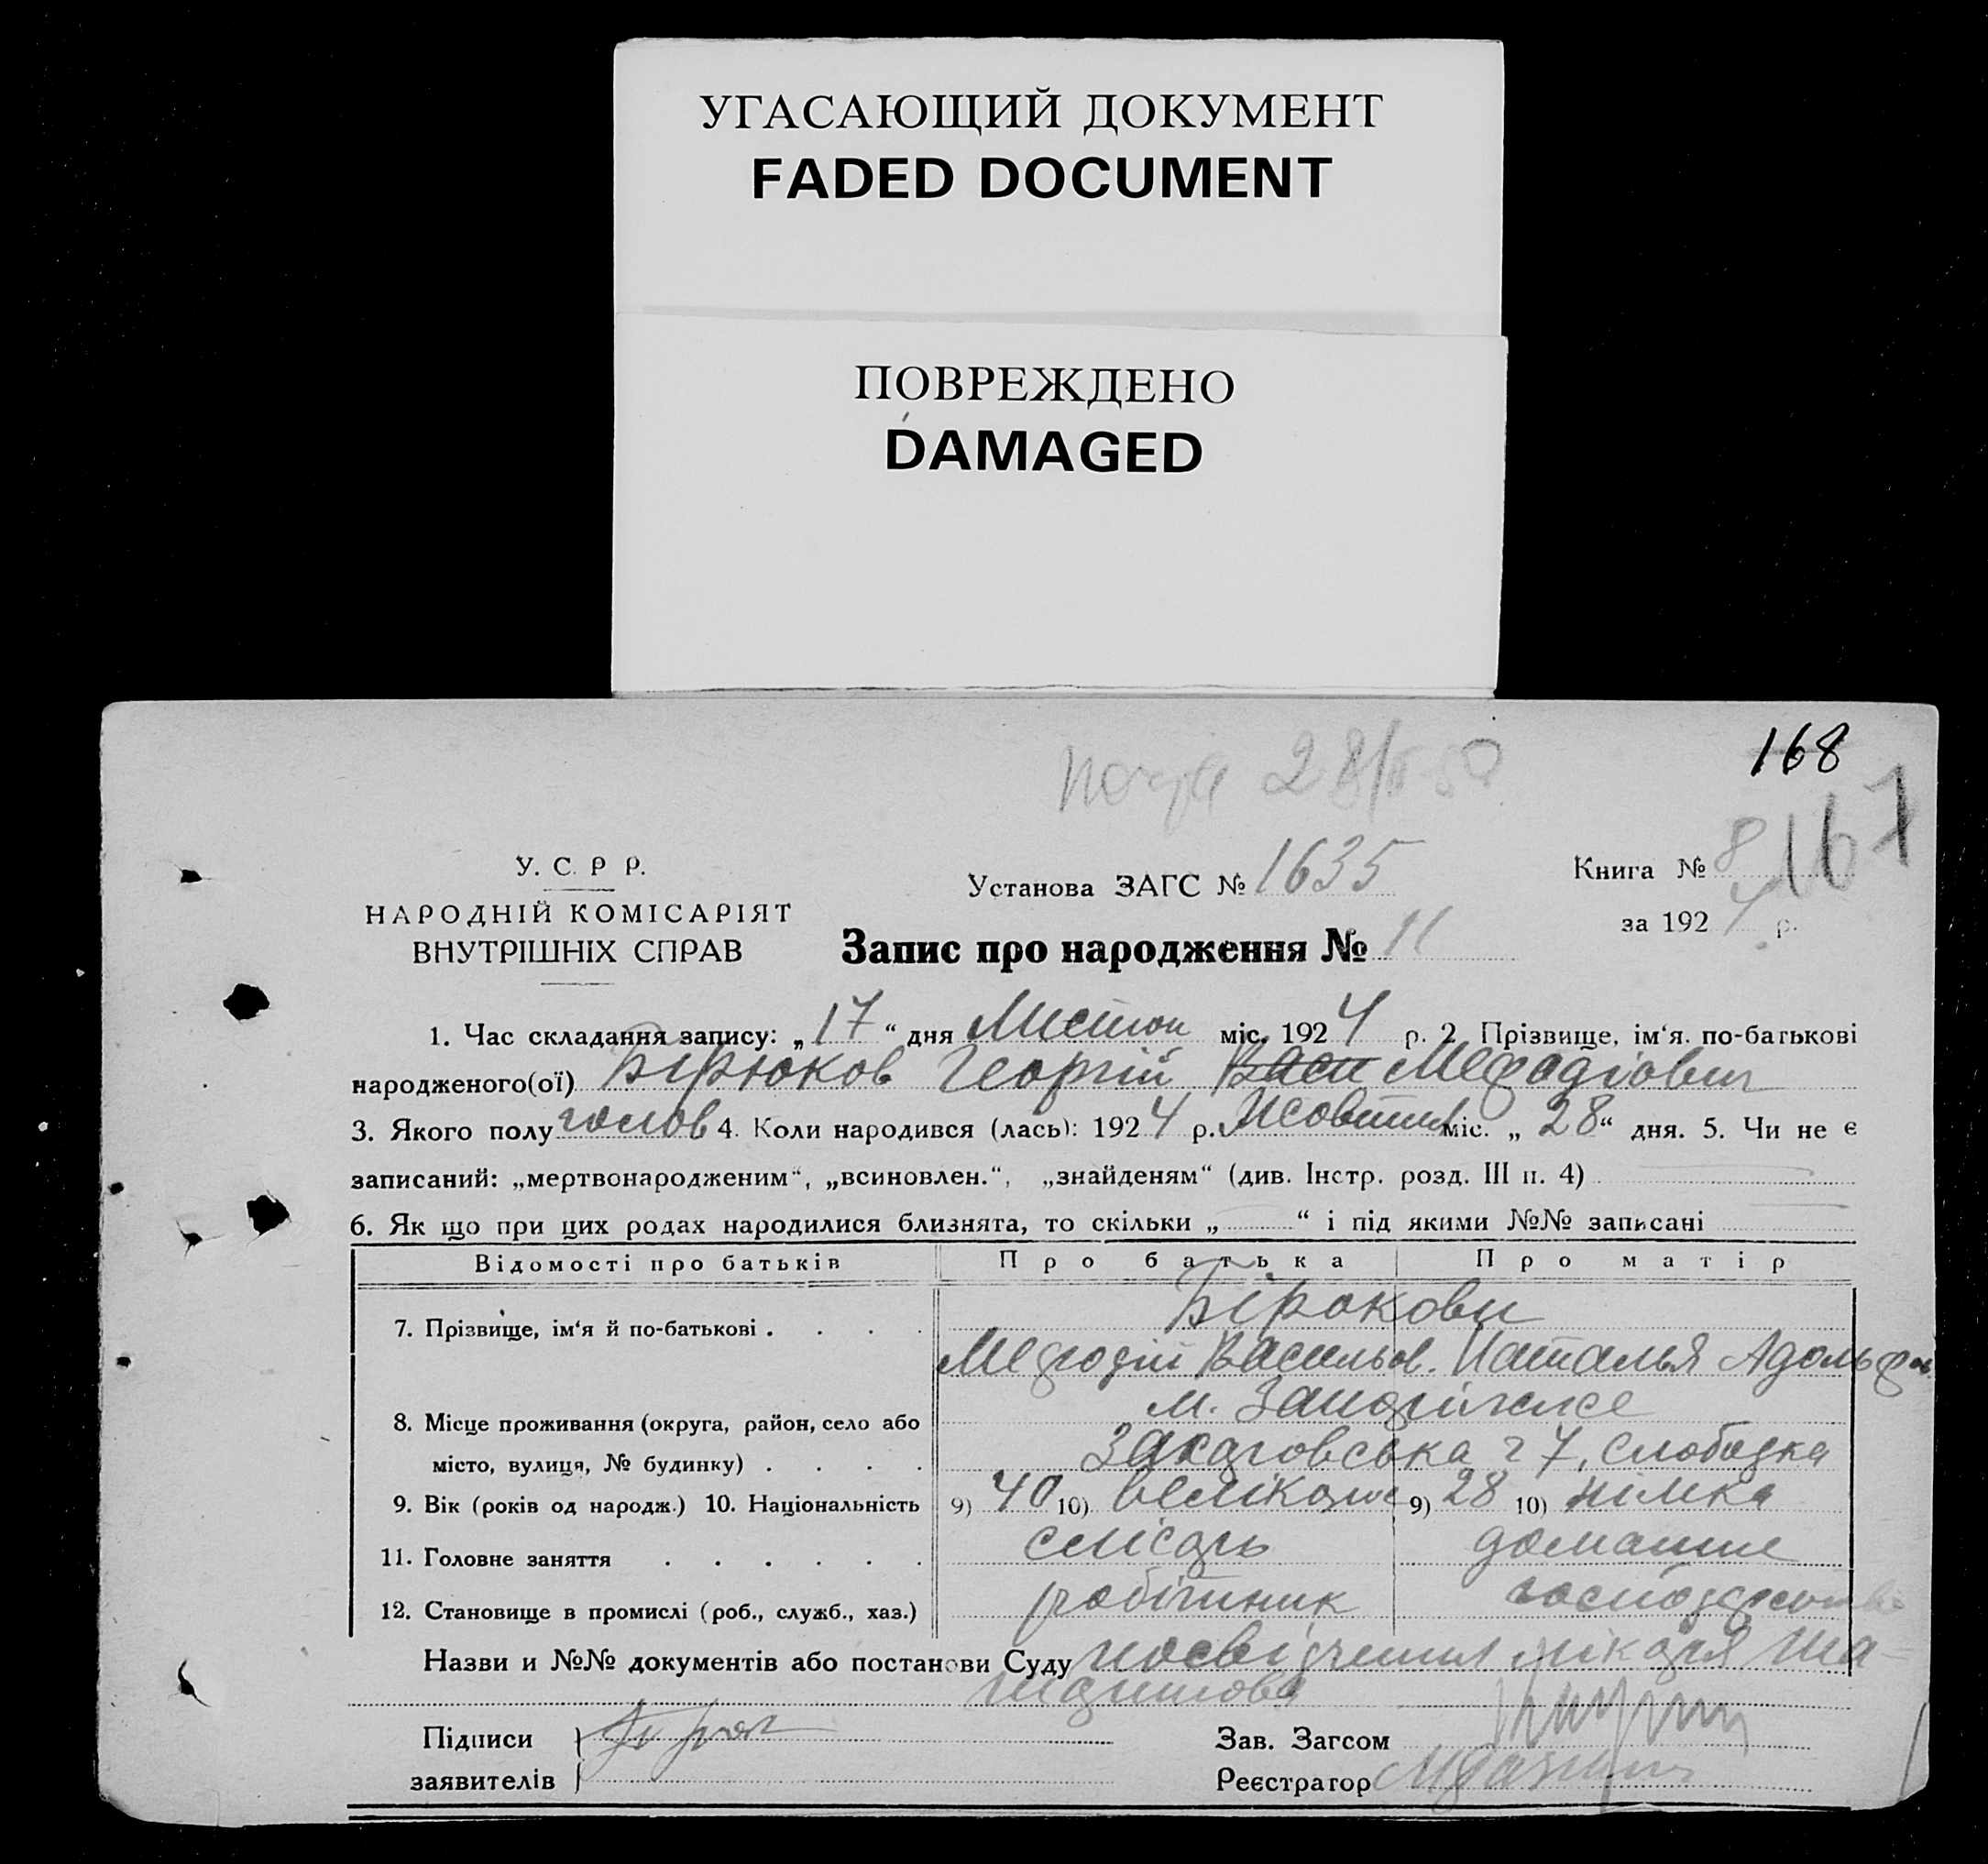 УГАСАЮЩИЙ ДОКУМЕНТ
FADED DOCUMENT
ПОВРЕЖДЕНО
DAMAGED
168
28/
167
У. С. Р Р.
НАРОДНІЙ КОМІСАРІЯТ
ВНУТРІШНІХ СПРАВ
Установа ЗАГС № 1635
Книга № 8
за 1924 р.
Запис про народження № 11
1. Час складання запису: „17“ дня Листоп міс. 1924 р. 2 Прізвище, ім‘я. по-батькові
народженого(ої) Бірюков Георгій Васи Мефодіович
3. Якого полу чолов 4. Коли народився (лась): 1924 р. Жовтня міс. „28“ дня. 5. Чи не є
записаний: „мертвонародженим“, „всиновлен.“, „знайденям“ (див. Інстр. розд. III п. 4)
6. Як що при цих родах народилися близнята, то скільки „ “ і під якими №№ записані
Відомості про батьків Про батька Про матір
7. Прізвище, ім‘я й по-батькові . . . . Бірюкови
Мефодій Васильов. Наталья Адольфов
8. Місце проживання (округа, район, село або м. Запоріжжє
місто, вулиця, № будинку) . . . . ч 7, слободка
9. Вік (років од народж.) 10. Національність 9) 40 10) велікорос 9) 28 10) німка
11. Головне заняття . . . . . . слюсарь домашнє
12. Становище в промислі (роб., служб., хаз.) робітник господарство
Назви и №№ документів або постанови Суду посвідчення лікаря
Підписи
заявителів
Зав. Загсом
Реєстратор